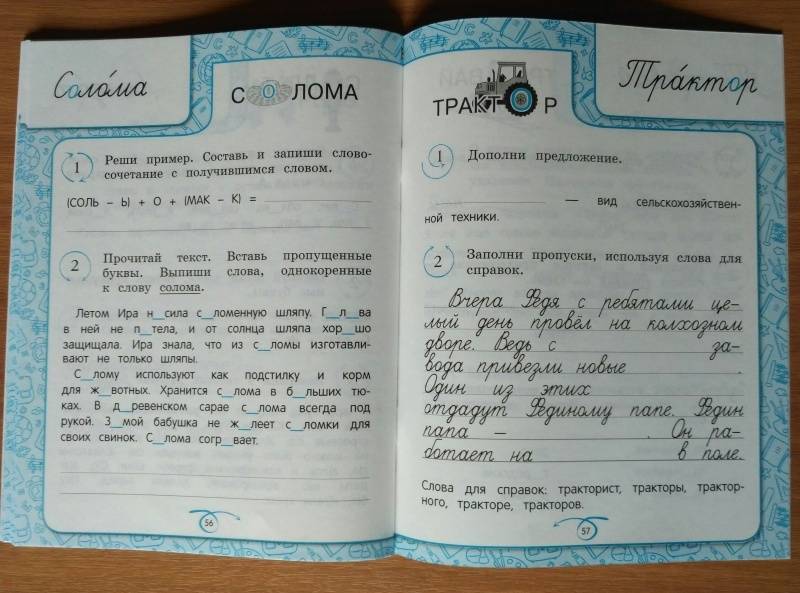 Солома
СОЛОМА
1 Реши пример. Составь и запиши слово-
сочетание с получившимся словом.
(СОЛЬ – Ы) + О + (МАК – К) =
2 Прочитай текст. Вставь пропущенные
буквы. Выпиши слова, однокоренные
к слову солома.
Летом Ира н_сила с_ломенную шляпу. Г_л_ва
в ней не п_тела, и от солнца шляпа хор_шо
защищала. Ира знала, что из с_ломы изготавли-
вают не только шляпы.
С_лому используют как подстилку и корм
для ж_вотных. Хранится с_лома в б_льших тю-
ках. В д_ревенском сарае с_лома всегда под
рукой. З_мой бабушка не ж_леет с_ломки для
своих свинок. С_лома согр_вает.
56
ТРАКТОР
Трактор
1 Дополни предложение.
— вид сельскохозяйствен-
ной техники.
2 Заполни пропуски, используя слова для
справок.
Вчера Федя с ребятами це-
лый день провёл на колхозном
дворе. Ведь с за-
вода привезли новые .
Один из этих
отдадут Фединому папе. Федин
папа – . Он ра-
ботает на в поле.
Слова для справок: тракторист, тракторы, трактор-
ного, тракторе, тракторов.
57